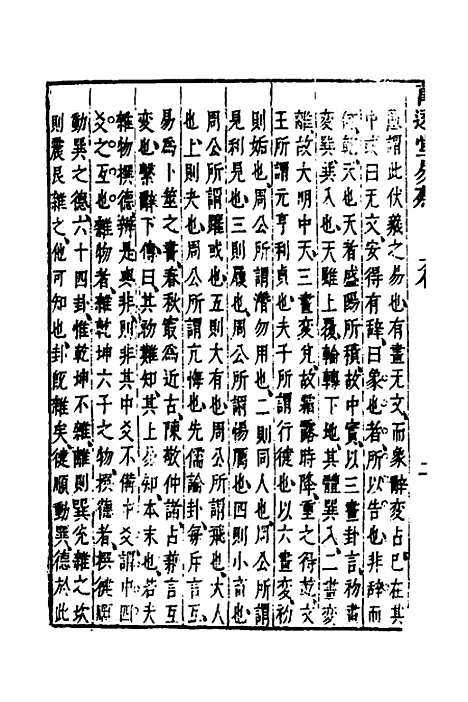 愚謂此伏羲之易也有畫无文而象辭變占已在其
中或曰无文安得有辭曰象也者所以告也非辭而
何乾天也天者盛陽所積故中實以三畫卦言初畫
變巽巽入也天雖上覆輪轉下地其體巽入二畫變
離故大明中天三畫變兌故霜露時降重之得乾文
王所謂元亨利貞也夫子所謂行健也以六畫變初
則姤也周公所謂潛勿用也二則同人也周公所謂
見利見也三則履也周公所謂惕厲也四則小畜也
周公所謂躍或也五則大有也周公所謂飛也大人
也上則夬也周公所謂亢悔也先儒論卦每斥言互
易為卜筮之書春秋最為近古陳敬仲諸占蔡言互
變也繫辭下傳曰其初難知其上易知本末也若夫
雜物撰德辨是與非則非其中爻不備中爻謂中四
爻之互也雜物者雜乾坤六子之物撰德者撰健順
動巽之德六十四卦惟乾坤不雜離則巽兌雜之坎
則震艮雜之他可知也卦既雜矣健順動巽德於此